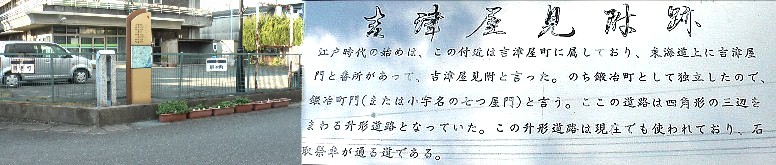 吉津屋見附跡
江戸時代の始めは、この付近は吉津屋町に属しており、東海道上に吉津屋
門と番所があって、吉津屋見附と言った。のち鍛冶町として独立したので、
鍛冶町門(または小字名の七つ屋門)と言う。ここの道路は四角形の三辺を
まわる升形道路となっていた。この升形道路は現在でも使われており、石
取祭車が通る道である。